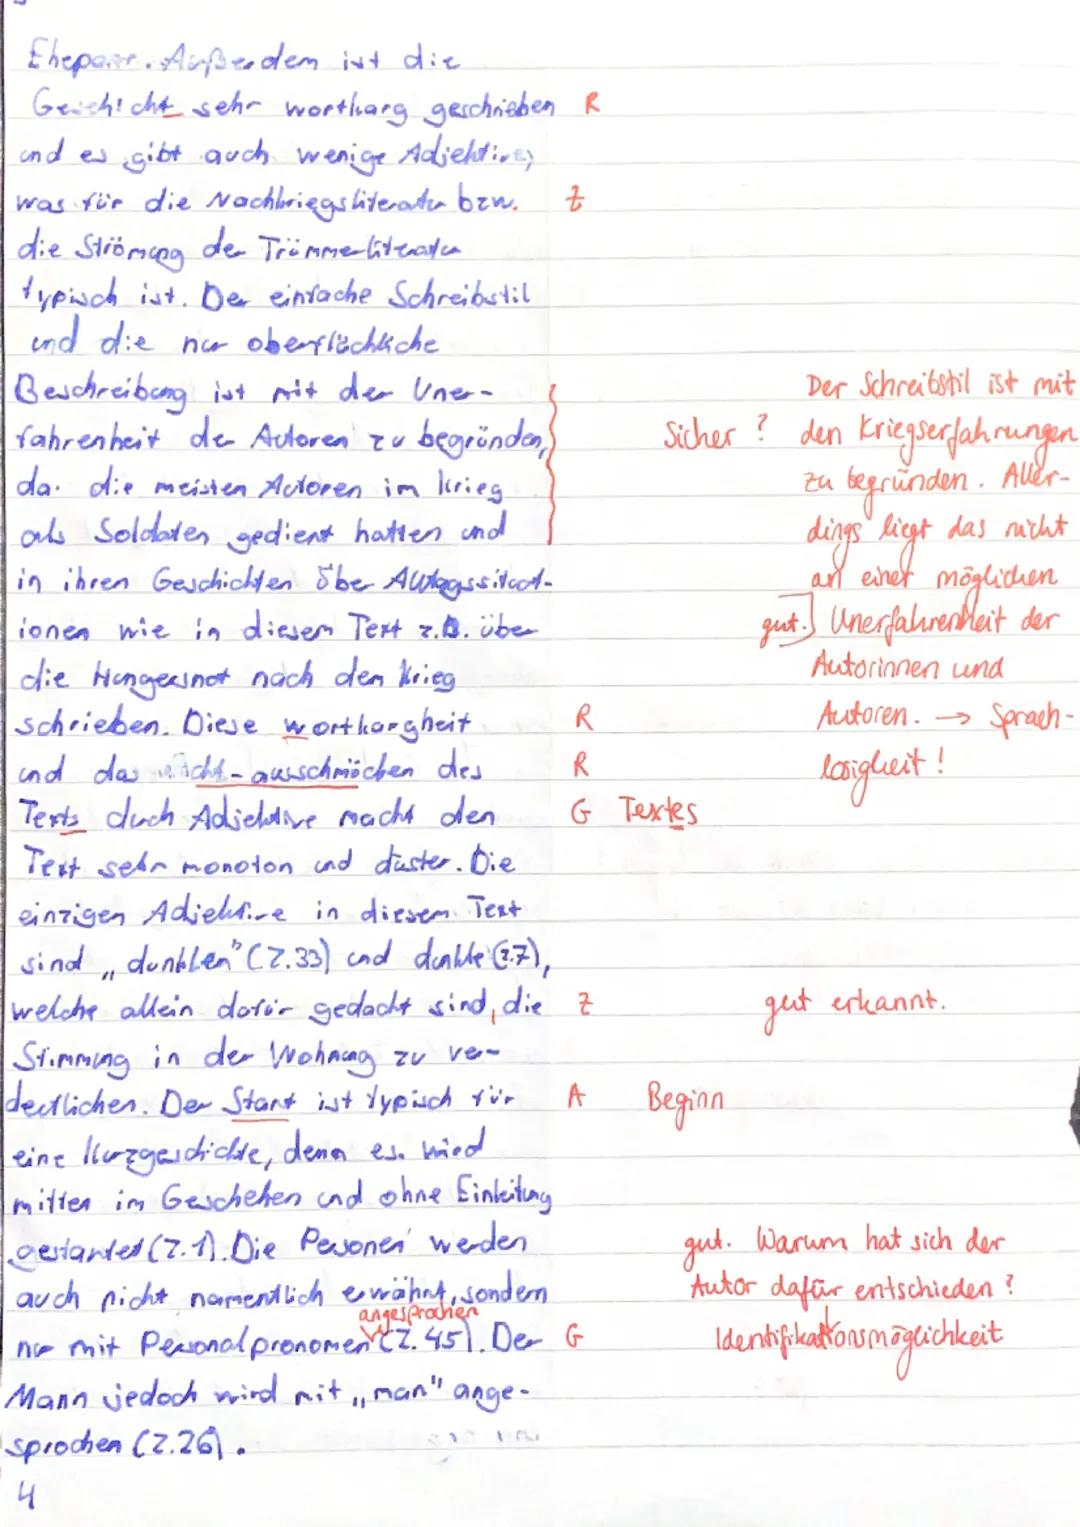 Ehepaar. Außerdem ist die
Geschicht sehr wortkarg geschrieben R
und es gibt auch wenige Adjektive,
was für die Nachkriegsliteratur bzw. Z
die Strömung der Trümmerliteratur
typisch ist. Der einfache Schreibstil
und die nur oberflächliche
Beschreibung ist mit der Uner- Der Schreibstil ist mit
fahrenheit der Autoren zu begründen, Sicher? den Kriegserfahrungen
da die meisten Autoren im Krieg zu begründen. Aller-
als Soldaten gedient hatten und dings liegt das nicht
in ihren Geschichten über Alltagssituat- an einer möglichen
ionen wie in diesem Text z.B. über gut. Unerfahrenheit der
die Hungersnot nach dem Krieg Autorinnen und
schrieben. Diese wortkargheit R Autoren. → Sprach-
und das nicht-ausschmücken des R losigkeit!
Texts durch Adjektive macht den G Textes
Text sehr monoton und düster. Die
einzigen Adjektive in diesem Text
sind „dunklen" (Z.33) und dunkle (Z.7),
welche allein dafür gedacht sind, die Z gut erkannt.
Stimmung in der Wohnung zu ver-
deutlichen. Der Start ist typisch für A Beginn
eine Kurzgeschichte, denn es wird
mitten im Geschehen und ohne Einleitung
gestartet (Z.1). Die Personen werden gut. Warum hat sich der
auch nicht namentlich erwähnt, sondern Autor dafür entschieden?
angesprochen
nur mit Personalpronomen (Z.45). Der G Identifikationsmöglichkeit
Mann jedoch wird mit „man" ange-
sprochen (Z.26).
4